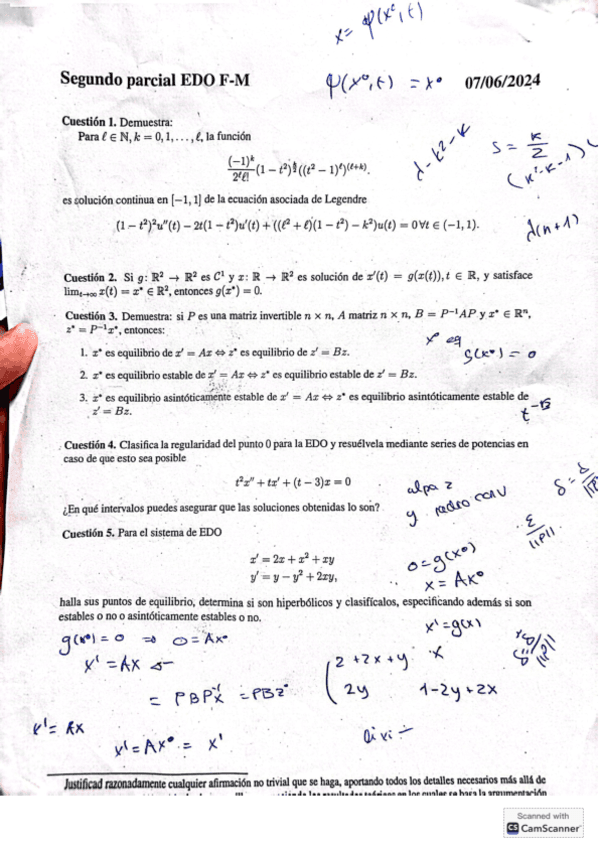 x = φ(x⁰, t)
Segundo parcial EDO F-M
φ(x⁰, t) = x⁰
07/06/2024
Cuestión 1. Demuestra:
Para ℓ ∈ ℕ, k = 0, 1, . . . , ℓ, la función
(−1)^k / 2^ℓ ℓ! (1 − t²)^{k/2} ((t² − 1)^ℓ)^{(ℓ+k)}.
λ − k² − k
S = k/2
(k² − k − 1)
es solución continua en [−1, 1] de la ecuación asociada de Legendre
(1 − t²)²u″(t) − 2t(1 − t²)u′(t) + ((ℓ² + ℓ)(1 − t²) − k²)u(t) = 0 ∀t ∈ (−1, 1).
λ(n+1)
Cuestión 2. Si g: ℝ² → ℝ² es C¹ y x: ℝ → ℝ² es solución de x′(t) = g(x(t)), t ∈ ℝ, y satisface
lim_{t→∞} x(t) = x* ∈ ℝ², entonces g(x*) = 0.
Cuestión 3. Demuestra: si P es una matriz invertible n × n, A matriz n × n, B = P⁻¹AP y x* ∈ ℝⁿ,
z* = P⁻¹x*, entonces:
x* eq
g(x⁰) = 0
1. x* es equilibrio de x′ = Ax ⇔ z* es equilibrio de z′ = Bz.
2. x* es equilibrio estable de x′ = Ax ⇔ z* es equilibrio estable de z′ = Bz.
3. x* es equilibrio asintóticamente estable de x′ = Ax ⇔ z* es equilibrio asintóticamente estable de
z′ = Bz.
Cuestión 4. Clasifica la regularidad del punto 0 para la EDO y resuélvela mediante series de potencias en
caso de que esto sea posible
t²x″ + tx′ + (t − 3)x = 0
alpa z
y
¿En qué intervalos puedes asegurar que las soluciones obtenidas lo son?
ε/||P||
Cuestión 5. Para el sistema de EDO
x′ = 2x + x² + xy
y′ = y − y² + 2xy,
0 = g(x⁰)
x = Ax⁰
halla sus puntos de equilibrio, determina si son hiperbólicos y clasifícalos, especificando además si son
estables o no o asintóticamente estables o no.
x' = g(x)
g(x⁰) = 0 ⇒ 0 = Ax⁰
x' = Ax
2 + 2x + y x
2y 1 − 2y + 2x
= PBP⁻¹x = PBz
x' = Ax
x' = Ax⁰ = x'
Justificad razonadamente cualquier afirmación no trivial que se haga, aportando todos los detalles necesarios más allá de
Scanned with
CS CamScanner